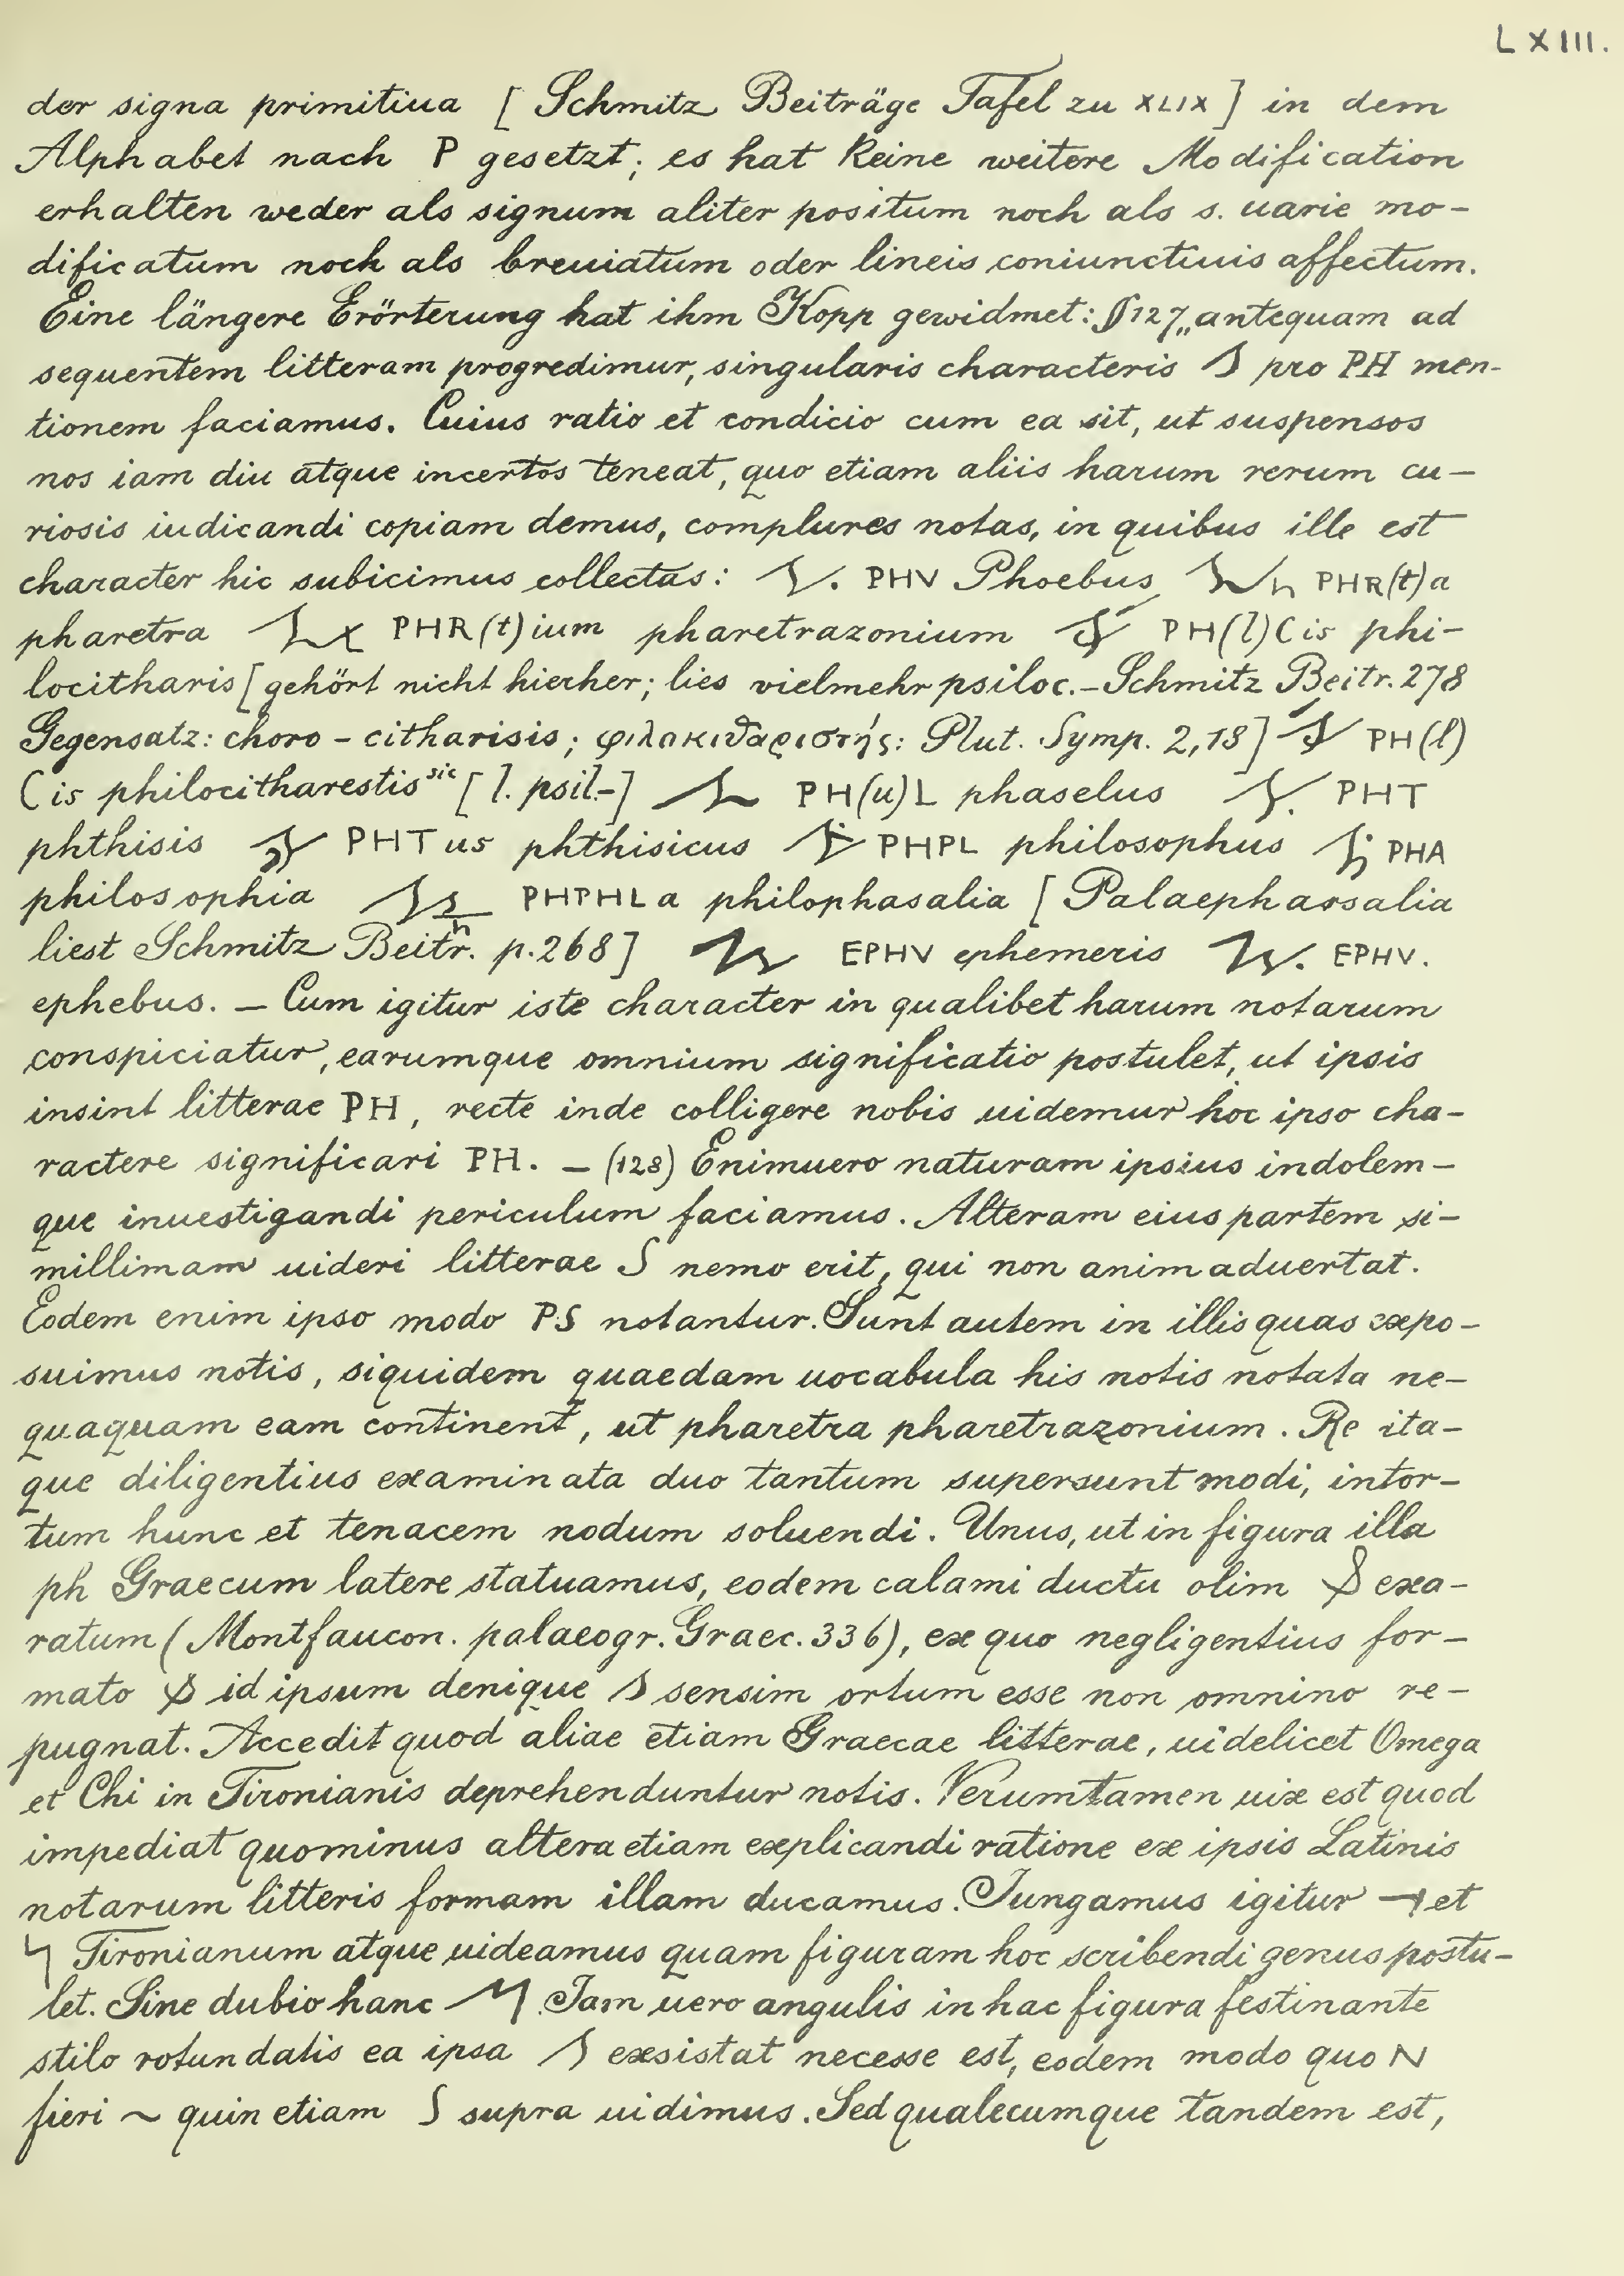 LXIII.
der signa primitiua [ Schmitz Beiträge Tafel zu XLIX ] in dem
Alphabet nach P gesetzt; es hat keine weitere Modification
erhalten weder als signum aliter positum noch als s. uarie mo-
dificatum noch als breuiatum oder lineis coniunctiuis affectum.
Eine längere Erörterung hat ihm Kopp gewidmet: § 127 „antequam ad
sequentem litteram progredimur, singularis characteris pro PH men-
tionem faciamus. Cuius ratio et condicio cum ea sit, ut suspensos
nos iam diu atque incertos teneat, quo etiam aliis harum rerum cu-
riosis iudicandi copiam demus, complures notas, in quibus ille est
character hic subicimus collectas: PHV Phoebus PHR(t)a
pharetra PHR(t)ium pharetrazonium PH(l)Cis phi-
locitharis [gehört nicht hierher; lies vielmehr psiloc.- Schmitz Beitr. 278
Gegensatz: choro-citharisis; φιλοκιθαριστής: Plut. Symp. 2,18] PH(l)
Cis philocitharestis sic [l. psil-] PH(u)L phaselus PHT
phthisis PHTus phthisicus PHPL philosophus PHA
philosophia PHPHLa philophasalia [Palaepharsalia
liest Schmitz Beitr. p. 268] EPHV ephemeris EPHV.
ephebus. – Cum igitur iste character in qualibet harum notarum
conspiciatur, earumque omnium significatio postulet, ut ipsis
insint litterae PH, recte inde colligere nobis uidemur hoc ipso cha-
ractere significari PH. – (128) Enimuero naturam ipsius indolem-
que inuestigandi periculum faciamus. Alteram eius partem si-
millimam uideri litterae S nemo erit, qui non animaduertat.
Eodem enim ipso modo PS notantur. Sunt autem in illis quas expo-
suimus notis, siquidem quaedam uocabula his notis notata ne-
quaquam eam continent, ut pharetra pharetrazonium. Re ita-
que diligentius examinata duo tantum supersunt modi, intor-
tum hunc et tenacem nodum soluendi. Unus, ut in figura illa
ph Graecum latere statuamus, eodem calami ductu olim exa-
ratum (Montfaucon. palaeogr. Graec. 336), ex quo negligentius for-
mato id ipsum denique sensim ortum esse non omnino re-
pugnat. Accedit quod aliae etiam Graecae litterae, uidelicet Omega
et Chi in Tironianis deprehenduntur notis. Verumtamen uix est quod
impediat quominus altera etiam explicandi ratione ex ipsis Latinis
notarum litteris formam illam ducamus. Jungamus igitur et
Tironianum atque uideamus quam figuram hoc scribendi genus postu-
let. Sine dubio hanc . Jam uero angulis in hac figura festinante
stilo rotundatis ea ipsa exsistat necesse est, eodem modo quo N
fieri ~ quin etiam S supra uidimus. Sed qualecumque tandem est,